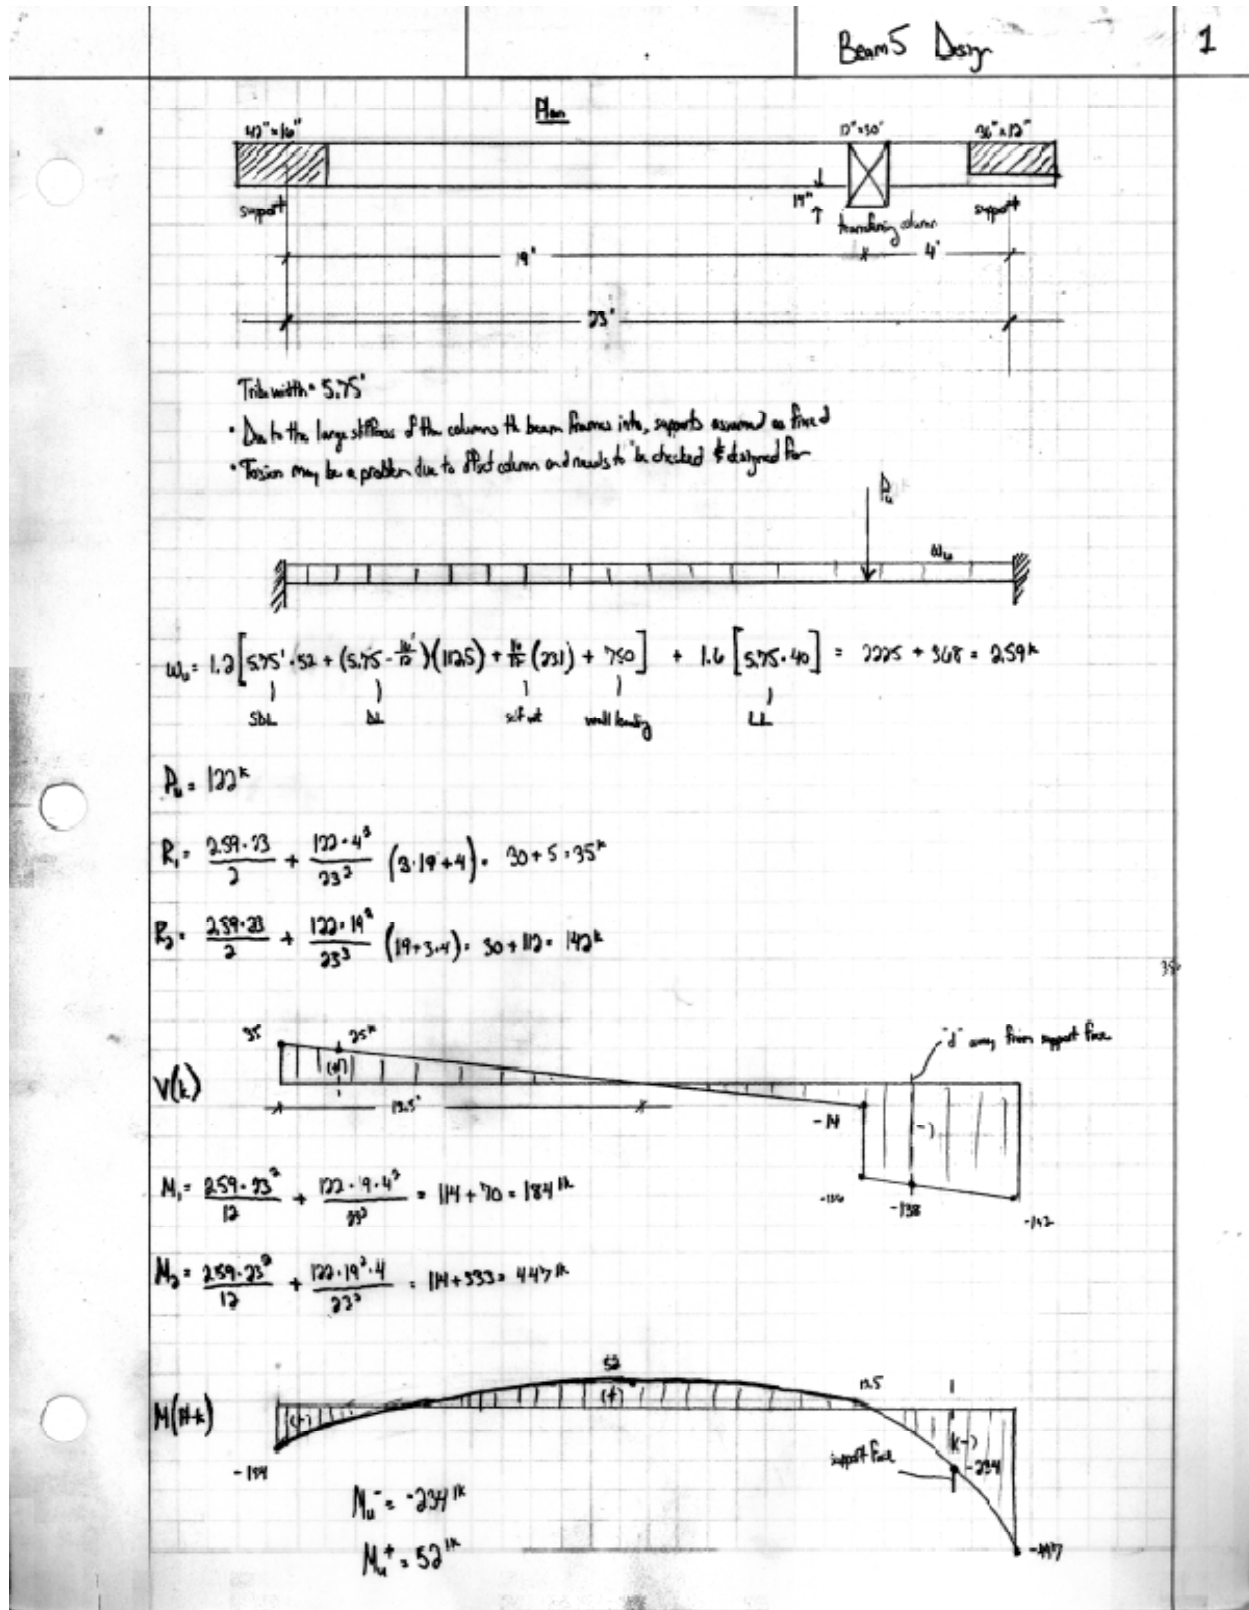 Beam 5 Design
1
Plan
42" × 16"
12" × 30"
36" × 12"
14"
support
transferring column
support
19'
4'
23'
Trib. width = 5.75'
• Due to the large stiffness of the columns the beam frames into, supports assumed as fixed
• Torsion may be a problem due to offset column and needs to be checked & designed for
Pu
ωu
ωu = 1.2 [5.75' · 52 + (5.75 - 16'/12)(112.5) + 16/12 (231) + 750] + 1.6 [5.75 · 40] = 2225 + 368 = 2.59k
SDL
DL
self wt
wall loading
LL
Pu = 122k
R1 = 2.59 · 23 / 2 + 122 · 4² / 23³ (3 · 19 + 4) = 30 + 5 = 35k
R2 = 2.59 · 23 / 2 + 122 · 19² / 23³ (19 + 3 · 4) = 30 + 112 = 142k
35
25k
(+)
"d" away from support face
V(k)
13.5'
-14
(-)
-136
-138
-142
M1 = 2.59 · 23² / 12 + 122 · 19 · 4² / 23² = 114 + 70 = 184 1k
M2 = 2.59 · 23² / 12 + 122 · 19² · 4 / 23² = 114 + 333 = 447 1k
52
(+)
12.5
M(ft-k)
(-)
(-)
support face
-234
-184
Mu- = -234 1k
-447
Mu+ = 52 1k